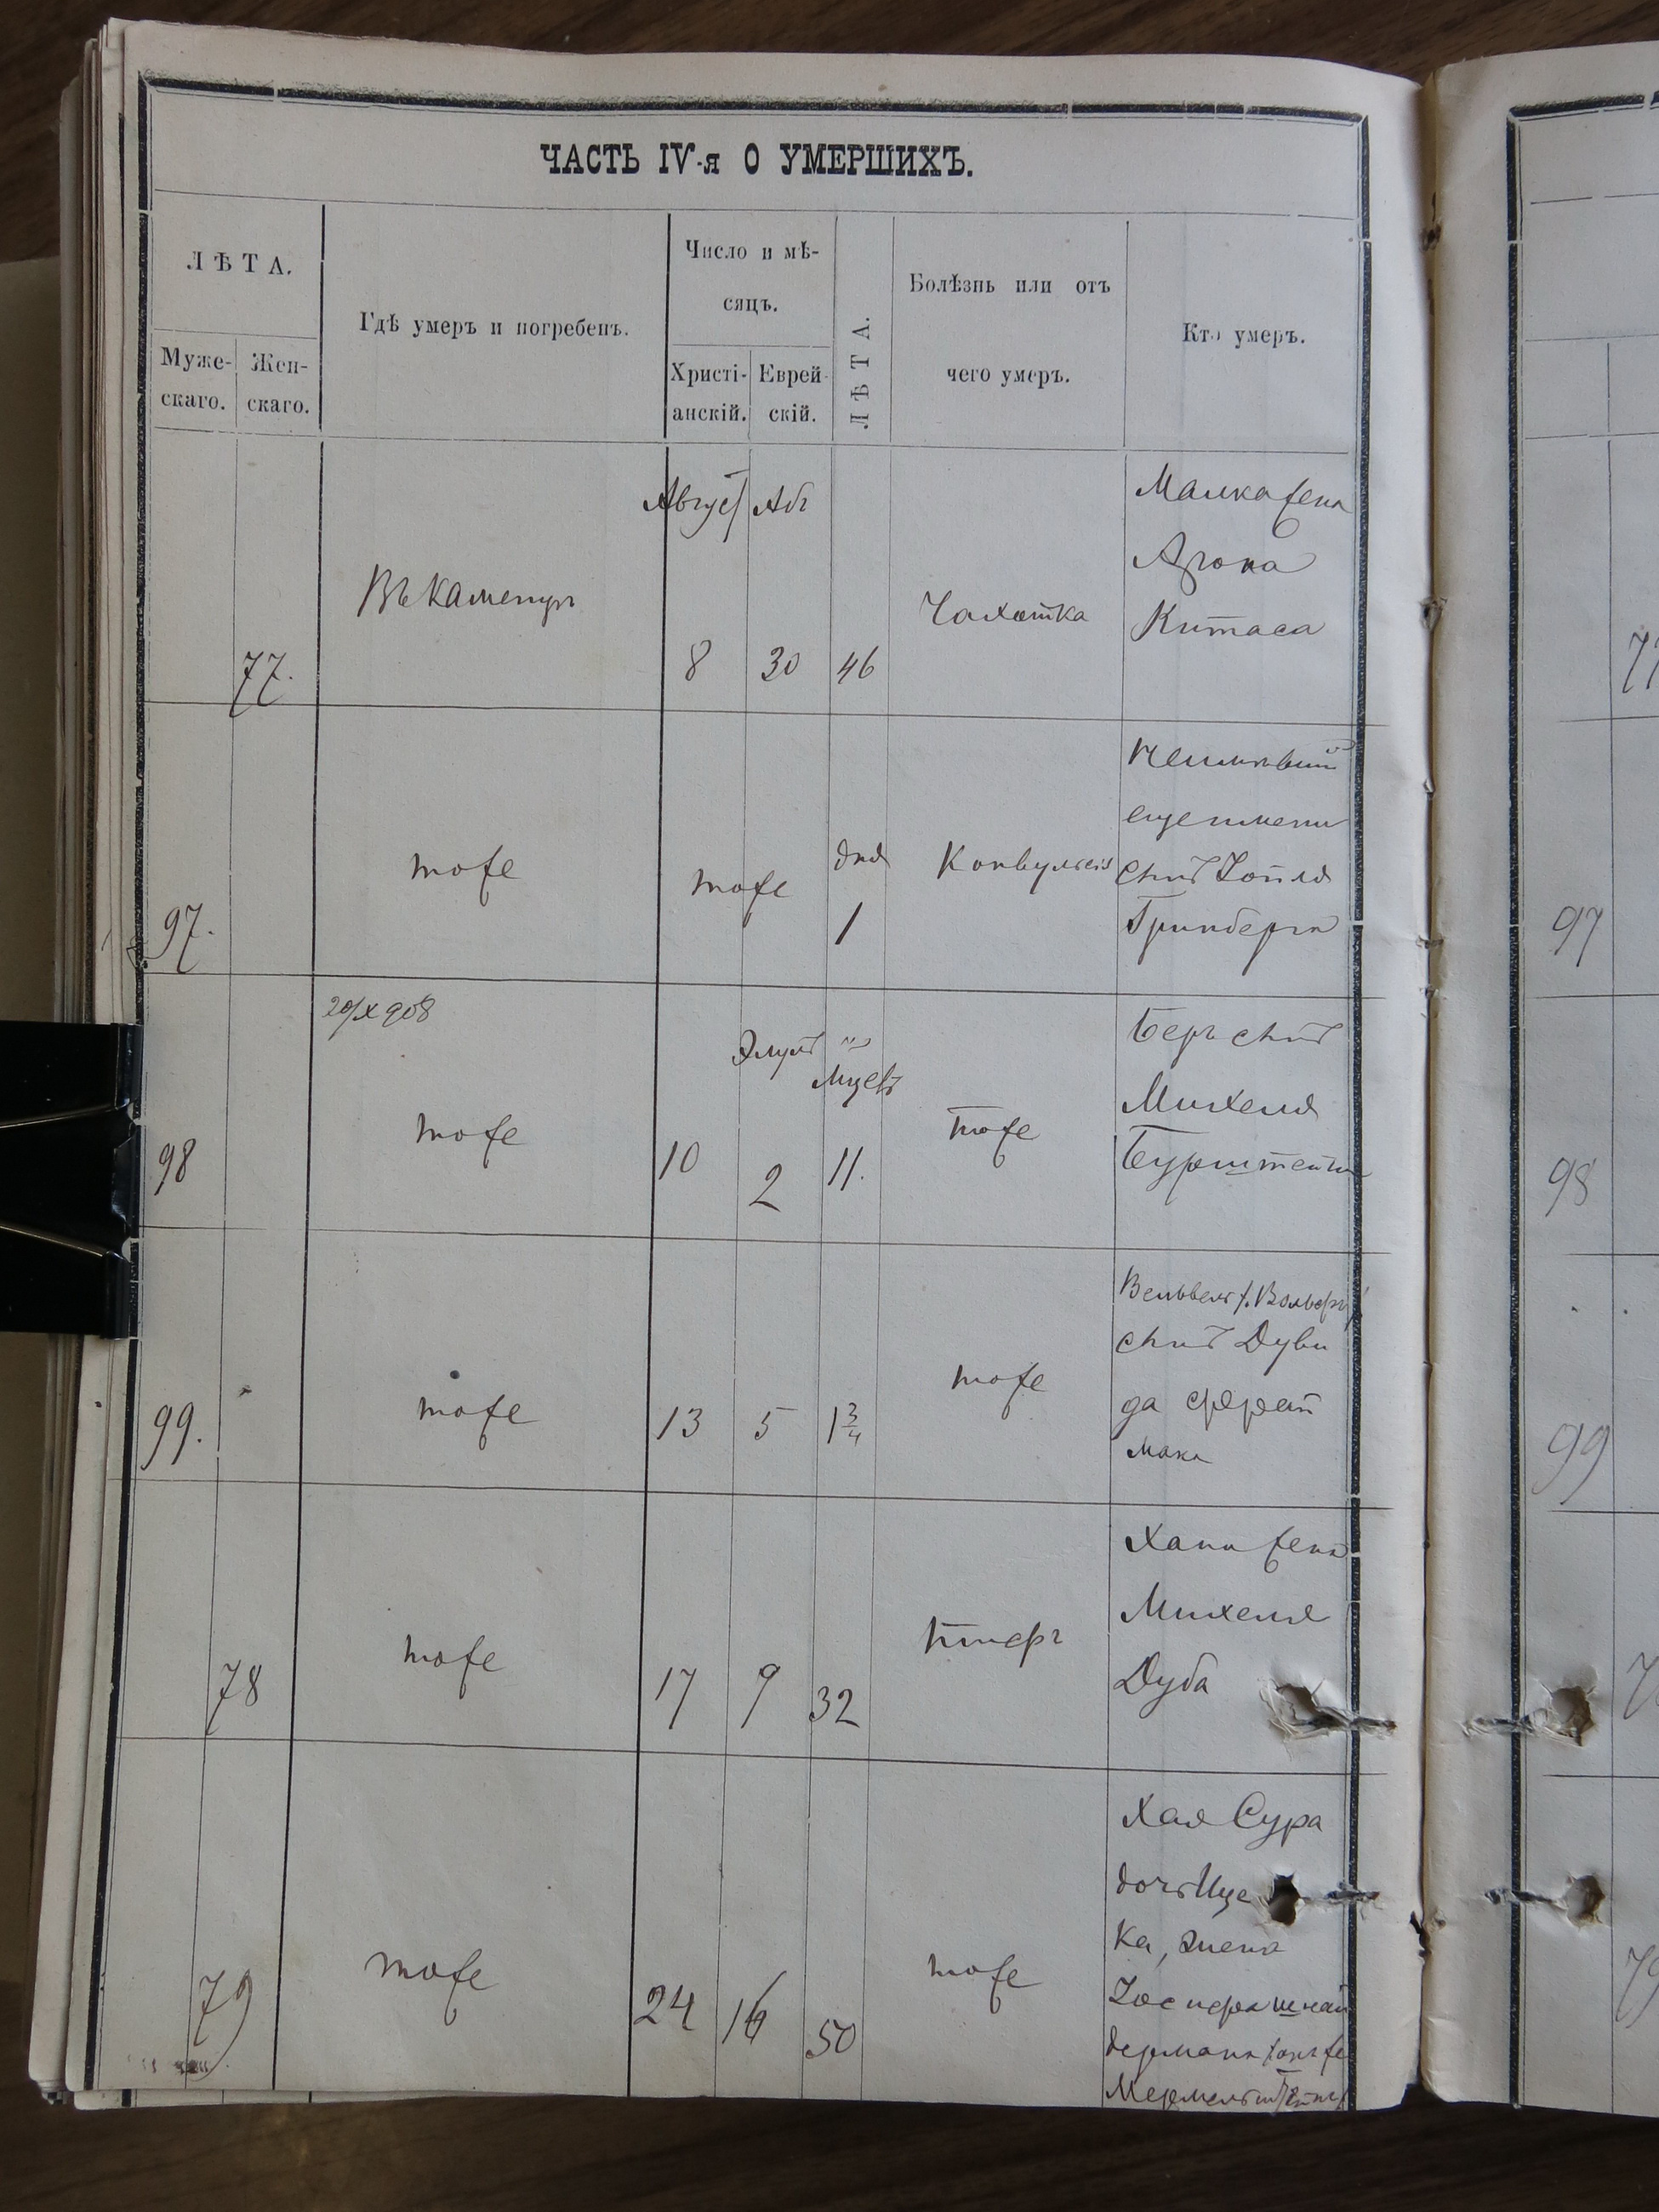 ЧАСТЬ IV-я О УМЕРШИХЪ.
ЛѢТА.
Муже-
скаго.
Жен-
скаго.
Гдѣ умеръ и погребенъ.
Число и мѣ-
сяцъ.
Христі-
анскій.
Еврей-
скій.
ЛѢТА.
Болѣзнь или отъ
чего умеръ.
Кто умеръ.
77.
Въ Каменцѣ
Август
8
Абъ
30
46
Чахотка
Малка жена
Арона
Китаса
97.
тоже
тоже
дня
1
Конвульсія
Неимѣвшій
еще имени
сынъ Іойля
Гринберга
20/X 908
98
тоже
10
Элулъ
2
Мцев
11.
тоже
Беръ сынъ
Михеля
Бурштейнъ
99.
тоже
13
5
1 3/4
тоже
Вельвель /: Вольфъ/
сынъ Дуви
да
мана
78
тоже
17
9
32
тиеръ
Хана жена
Михеля
Дуба
79
тоже
24
16
50
тоже
Хая Сура
дочь Ице
ка, жена
Іосифа Шнай
дермана /онъ же
Мермельштейнъ/
97
98
99